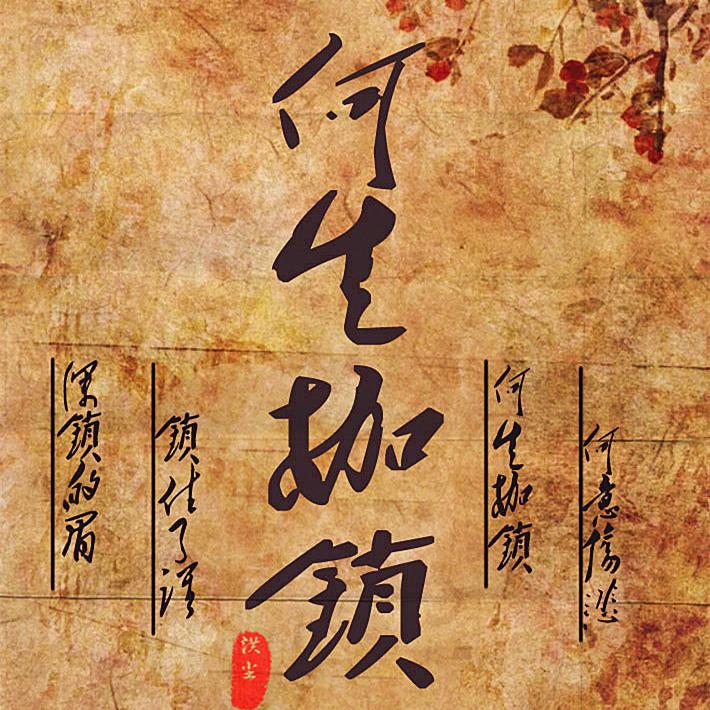 何生枷鎖
何意傷悲
何生枷鎖
鎖住了誰
深鎖的眉
洪尘